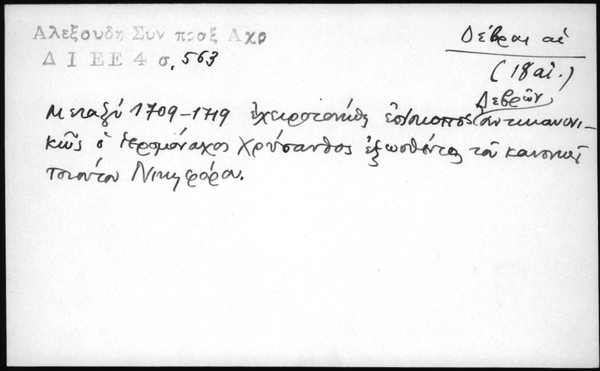 Αλεξουδη Συν πραξ Αχρ
Δ Ι Ε Ε 4 σ. 563
Δέβραι αἱ
(18 αἰ.)
Μεταξύ 1709-1719 ἐχειροτονήθη ἐπίσκοπος Δεβρῶν ἀντικανονι-
κῶς ὁ ἱερομόναχος Χρύσανθος ἐξωσθέντος τοῦ κανονικῶς
Νικηφόρου.